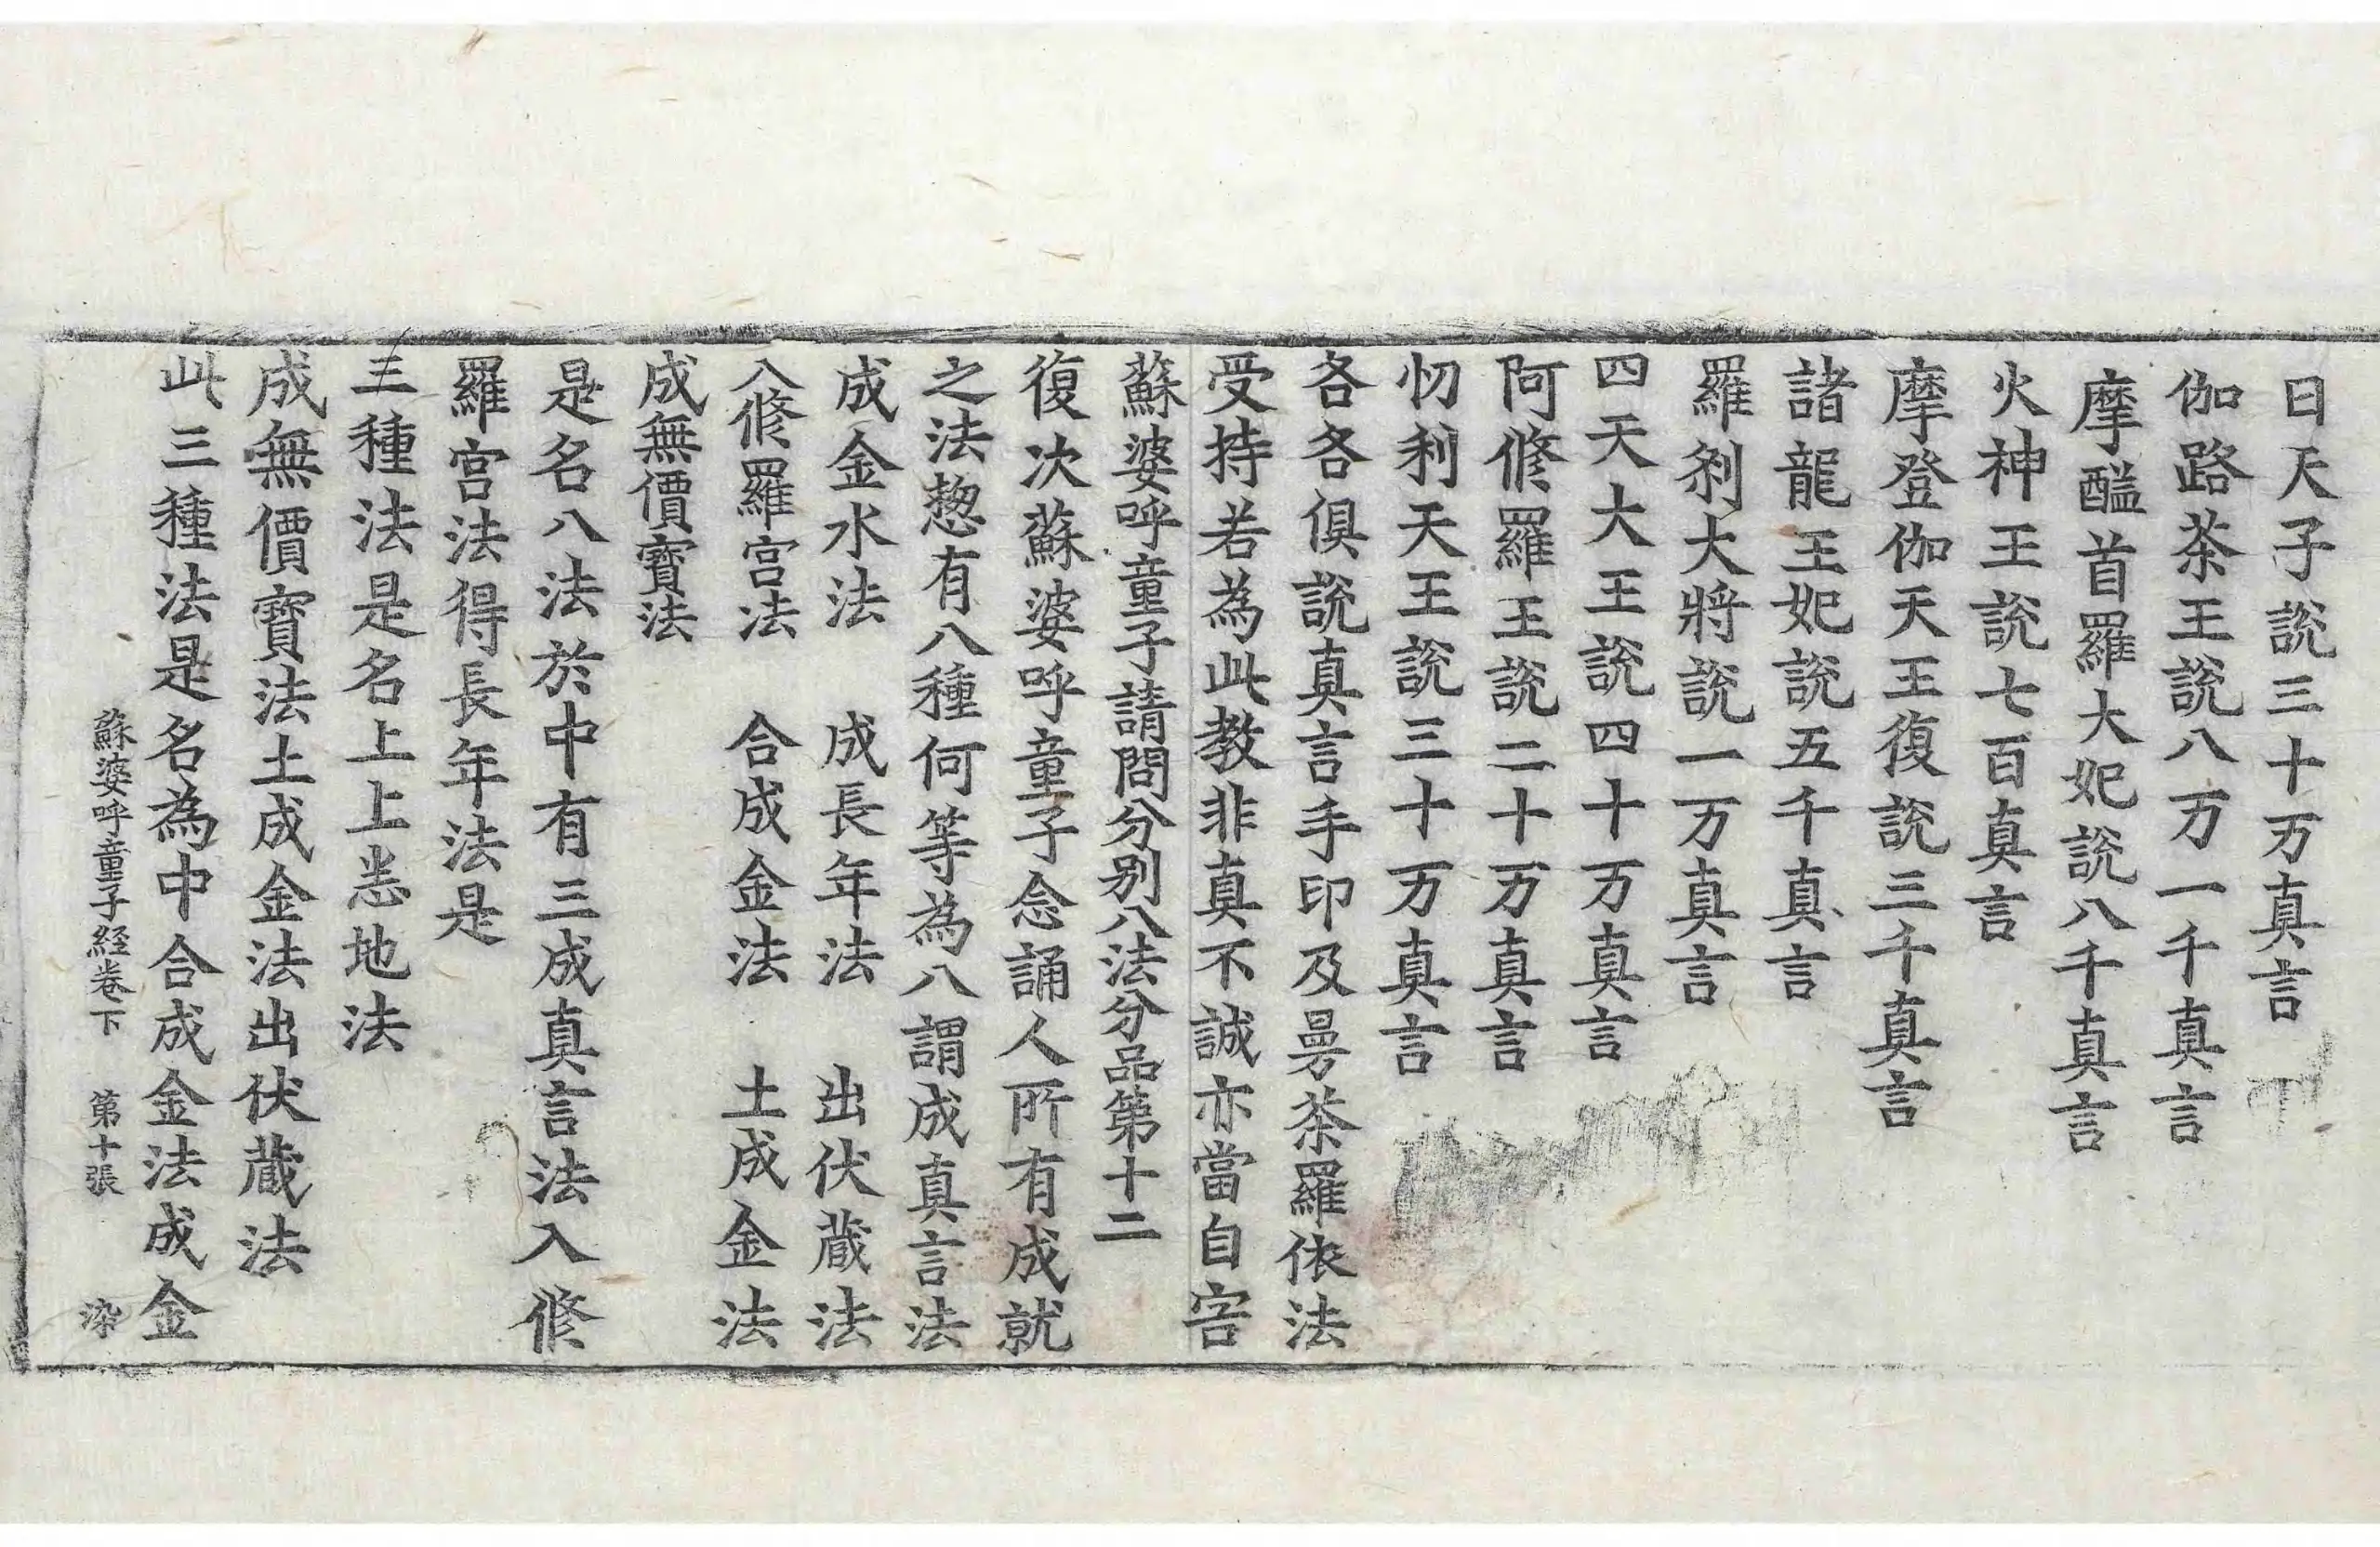 日天子說三十万真言
伽路茶王說八万一千真言
摩醯首羅大妃說八千真言
火神王說七百真言
摩登伽天王復說三千真言
諸龍王妃說五千真言
羅刹大將說一万真言
四天大王說四十万真言
阿修羅王說二十万真言
忉利天王說三十万真言
各各俱說真言手印及曼茶羅依法
受持若為此教非真不誠亦當自害
蘇婆呼童子請問分別八法分品第十二
復次蘇婆呼童子念誦人所有成就
之法揔有八種何等為八謂成真言法
成金水法　成長年法　出伏蔵法
入修羅宮法　合成金法　土成金法
成無價寶法
是名八法於中有三成真言法入修
羅宮法得長年法是
三種法是名上上悉地法
成無價寶法土成金法出伏蔵法
此三種法是名為中合成金法成金
蘇婆呼童子経卷下　第十張　染